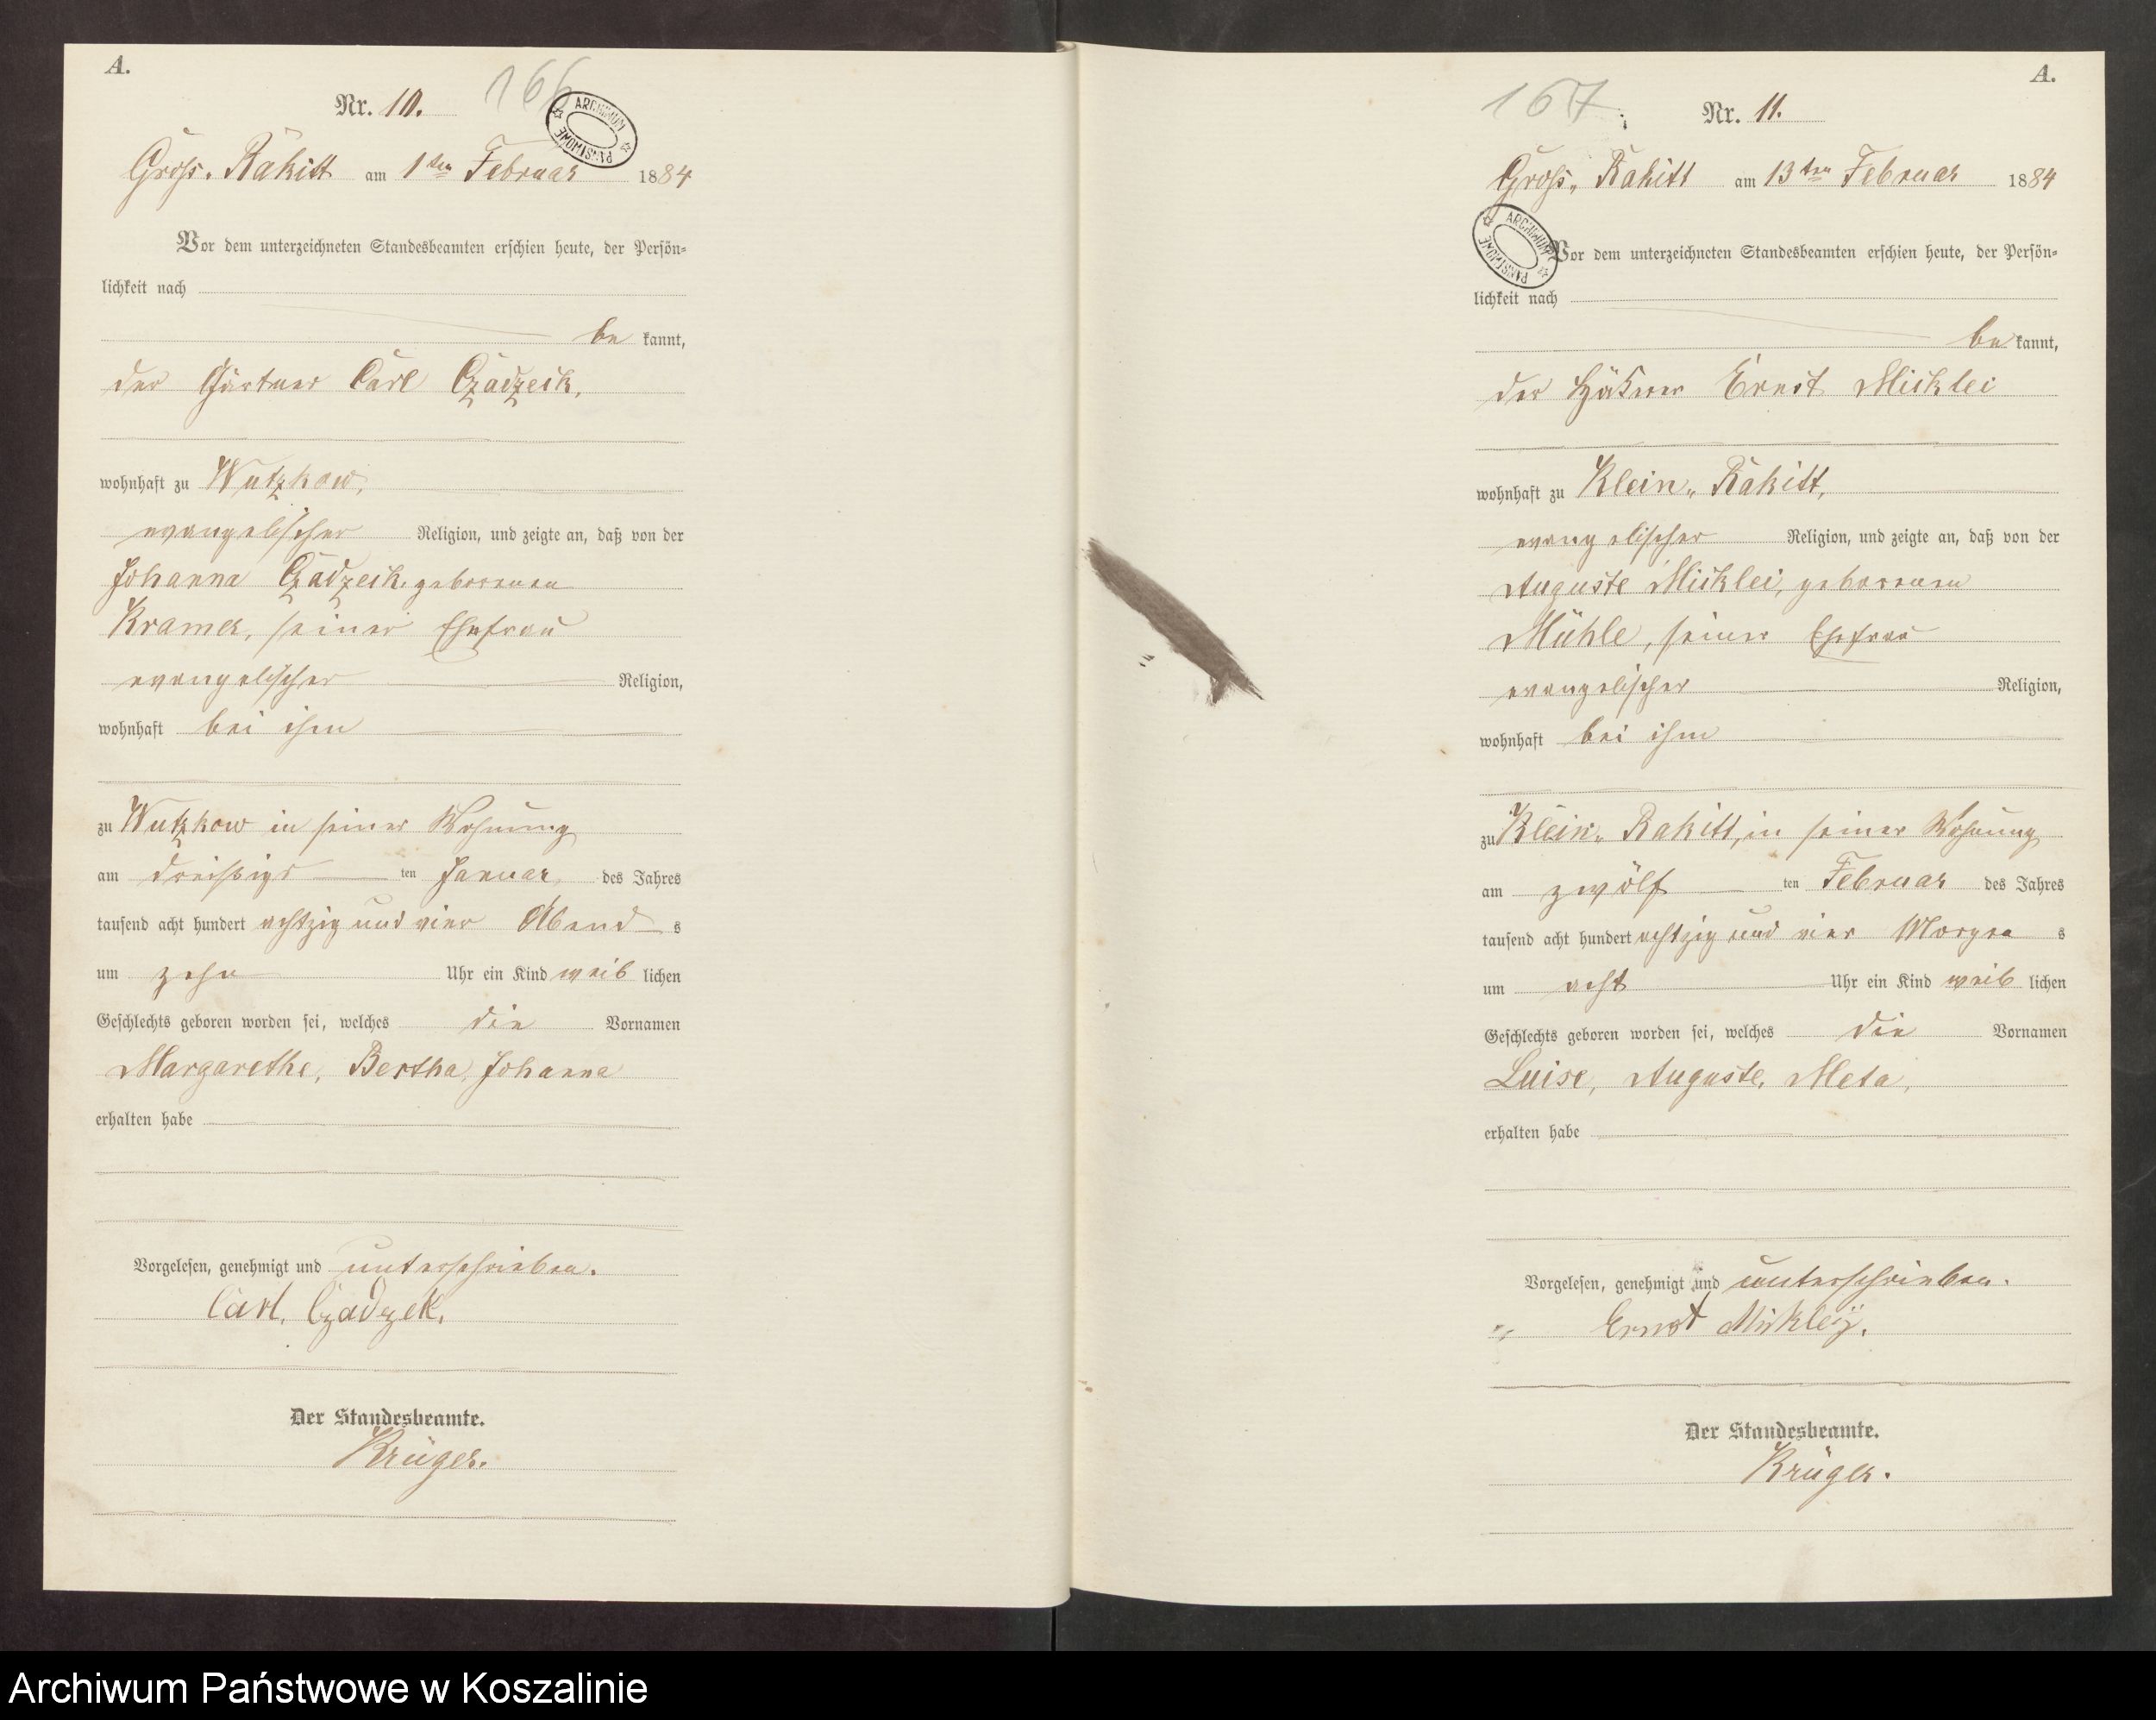 A.
166
Nr. 10.
ARCHIWUM PAŃSTWOWE
Gross. Rakitt am 1ten Februar 1884
Vor dem unterzeichneten Standesbeamten erschien heute, der Persön-
lichkeit nach
be kannt,
der Gärtner Carl Czadzeck,
wohnhaft zu Wutzkow,
evangelischer Religion, und zeigte an, daß von der
Johanna Czadzeck geborenen
Kramer, seiner Ehefrau
evangelischer Religion,
wohnhaft bei ihm
zu Wutzkow in seiner Wohnung
am dreißigs ten Januar des Jahres
tausend acht hundert achtzig und vier Abend s
um zehn Uhr ein Kind weib lichen
Geschlechts geboren worden sei, welches die Vornamen
Margarethe, Bertha, Johanna
erhalten habe
Vorgelesen, genehmigt und unterschrieben.
Carl. Czadzek.
Der Standesbeamte.
Krüger.
A.
167
Nr. 11.
Gross„ Rakitt am 13ten Februar 1884
ARCHIWUM PAŃSTWOWE
Vor dem unterzeichneten Standesbeamten erschien heute, der Persön-
lichkeit nach
be kannt,
der Ernst Micklei
wohnhaft zu Klein„ Rakitt,
evangelischer Religion, und zeigte an, daß von der
Auguste Micklei, geborenen
Mühle, seiner Ehefrau
evangelischer Religion,
wohnhaft bei ihm
zu Klein„ Rakitt, in seiner Wohnung
am zwölf ten Februar des Jahres
tausend acht hundert achtzig und vier Morgen s
um acht Uhr ein Kind weib lichen
Geschlechts geboren worden sei, welches die Vornamen
Luise, Auguste, Meta,
erhalten habe
Vorgelesen, genehmigt und unterschrieben.
Ernst Mickleÿ.
Der Standesbeamte.
Krüger.
Archiwum Państwowe w Koszalinie